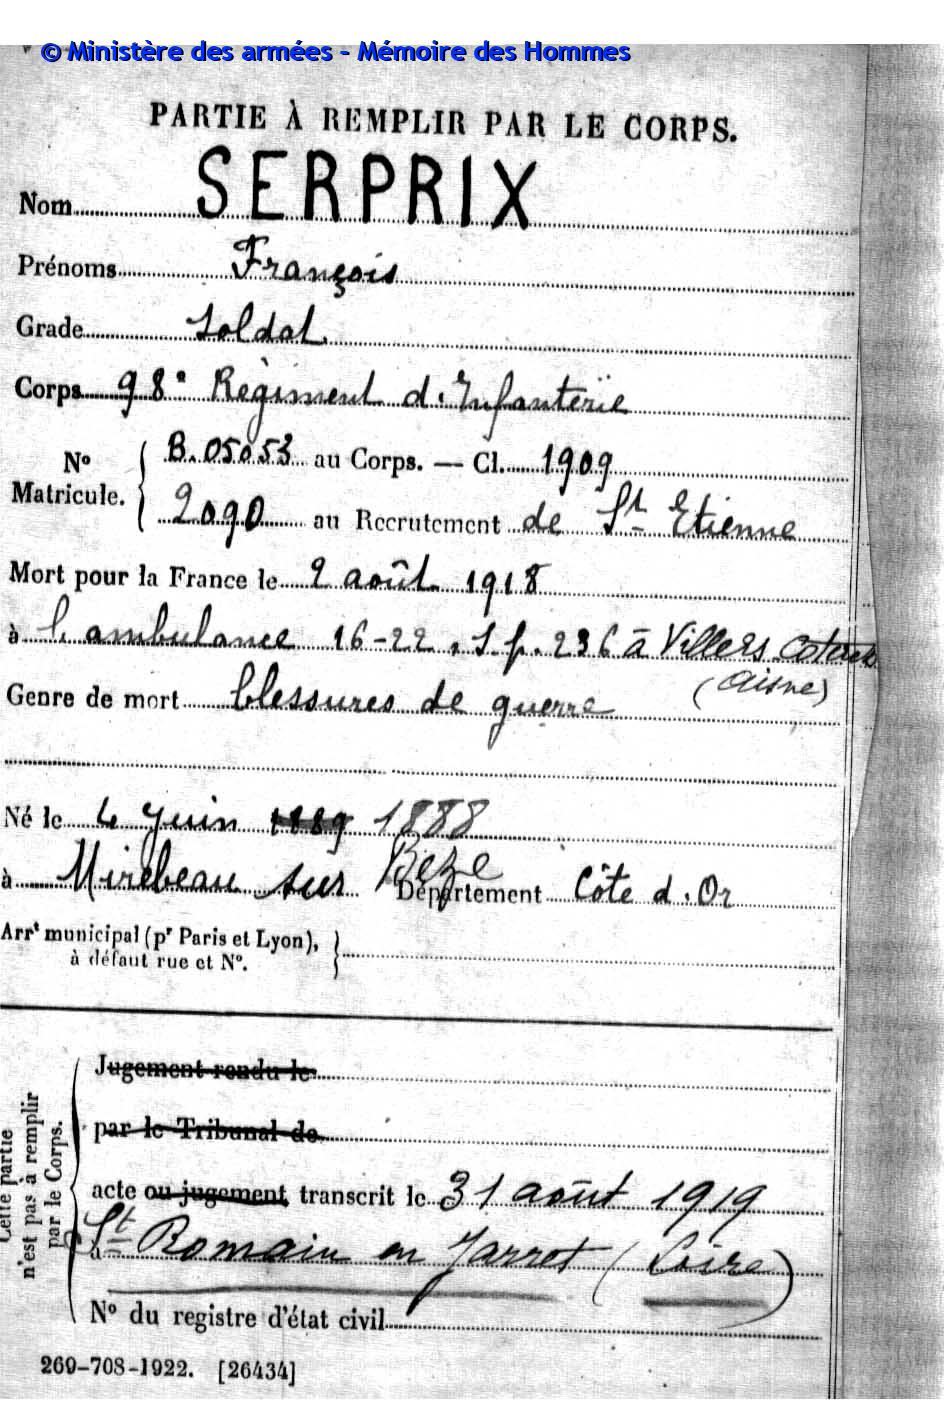 © Ministère des armées - Mémoire des Hommes
PARTIE À REMPLIR PAR LE CORPS.
Nom SERPRIX
Prénoms François
Grade Soldat
Corps 98e Régiment d'Infanterie
No Matricule. B.05053 au Corps. — Cl. 1909
2090 au Recrutement de St Etienne
Mort pour la France le 2 août 1918
à l'ambulance 16-22, S.p. 236 à Villers Coterets
(Aisne)
Genre de mort blessures de guerre
Né le 4 Juin 1889 1888
à Mirebeau sur Beze Département Côte d'Or
Arrt municipal (pr Paris et Lyon),
à défaut rue et No.
Cette partie n'est pas à remplir par le Corps.
Jugement rendu le
par le Tribunal de
acte ou jugement transcrit le 31 août 1919
à St Romain en Jarrot (Loire)
No du registre d'état civil
269-708-1922. [26434]